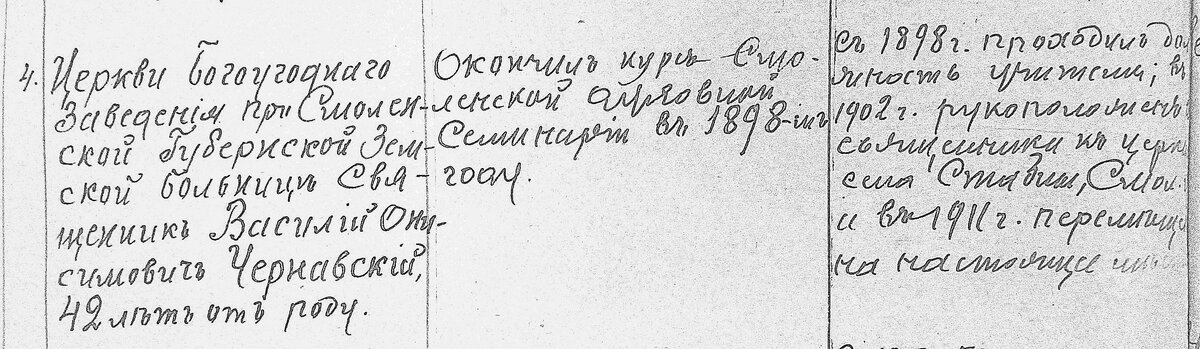 4. Церкви Богоугоднаго
Заведенія при Смолен-
ской Губернской Зем-
ской больницѣ Свя-
щенникъ Василій Они-
симовичъ Чернавскій,
42 лѣтъ отъ роду.
Окончилъ курсъ Смо-
ленской духовной
Семинаріи въ 1898-мъ
году.
Съ 1898 г. проходилъ дол
жность учителя; въ
1902 г. рукоположенъ
священника къ церк
села, Смол.
и въ 1911 г. перемѣщ
на настоящее мѣст